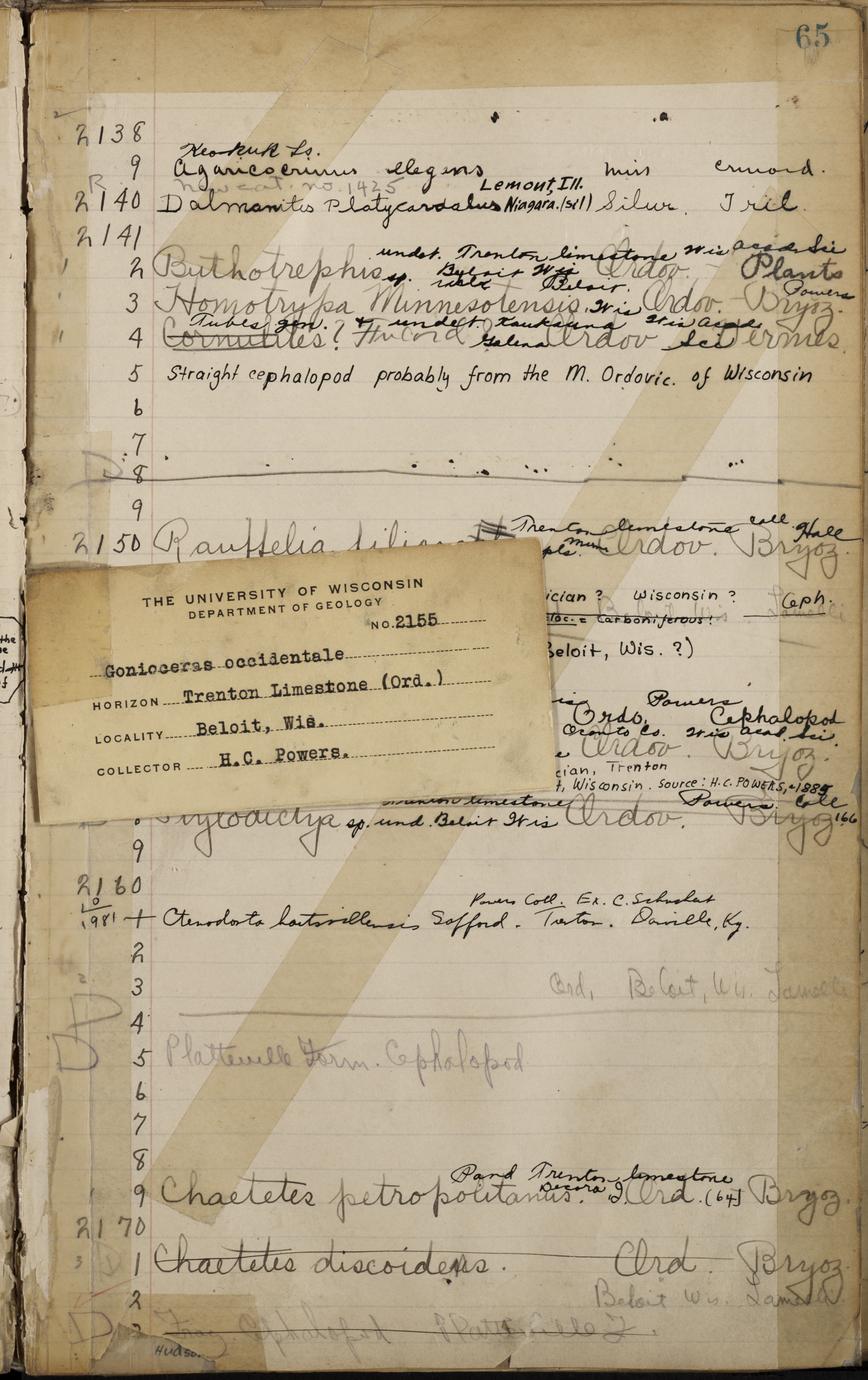 65
2138
Keokuk Ls.
9 Agaricocrinus elegans miss crinoid.
R new cat. no. 1425 Lemont, Ill.
2140 Dalmanites Platycaudalus Niagara. (sil) Silur. Tril.
2141
undet. Trenton limestone Wis acad. Sci
2 Buthotrephis sp. Beloit Wis Ordov. - Plants
Beloit. Powers
3 Homotrypa Minnesotensis, Wis Ordov. - Bryoz.
Tubes gen. & undet. Kaukauna Wis acad
4 Cornulites? Galena Ordov Sci Vermes.
5 Straight cephalopod probably from the M. Ordovic. of Wisconsin
6
7
D 8
9
Trenton limestone coll. Hall
2150 Rauffelia Minn Ordov. Bryoz.
ician? Wisconsin? Ceph.
Loc. = Carboniferous!
Beloit, Wis. ?)
THE UNIVERSITY OF WISCONSIN
DEPARTMENT OF GEOLOGY
No. 2155
Gonioceras occidentale
HORIZON Trenton Limestone (Ord.)
LOCALITY Beloit, Wis.
COLLECTOR H.C. Powers.
Powers
Ordo, Cephalopod
Oconto Co. Wis acad Sci.
Ordov. Bryoz.
cian, Trenton
t, Wisconsin. Source: H.C. POWERS, ~1885
Trenton limestone Powers Coll
8 sp. und. Beloit Wis Ordov. Bryoz. 166
9
2160
Powers Coll. Ex. C. Schuchert
1981 1 Ctenodonta hartsvillensis Safford. Trenton. Danville, Ky.
2
3 Ord, Beloit, Wis. Lamelli
4
D 5 Platteville Form. Cephalopod
6
7
8
Pand Trenton limestone
9 Chaetetes petropolitanus. Decorah Ord. (64) Bryoz.
2170
3 1 Chaetetes discoideus. Ord. Bryoz
2 Beloit Wis. Lamelli
D 3 Frag. Cephalopod Platteville
Hudso.